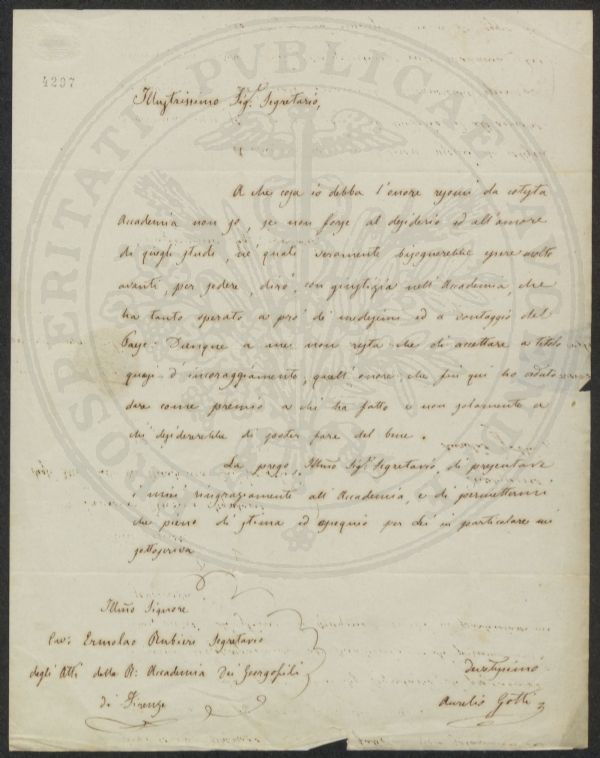 PROSPERITATI PVBLICAE
4297
Illustrissimo Sigr. Segretario,
A che cosa io debba l'onore resomi da cotesta
Accademia non so, se non forse al desiderio ed all'amore
di quegli studi, ne' quali veramente bisognerebbe essere molto
avanti, per sedere, dirò, con giustizia nell'Accademia, che
ha tanto operato a prò di medesimi ed a vantaggio del
Paese. Dunque a me non resta che di accettare a titolo
quasi d'incoraggiamento, quell'onore, che fin qui ho veduto
dare come premio a chi ha fatto e non solamente a
chi desidererebbe di poter fare del bene.
La prego, Illmo Sigr. Segretario, di presentare
i miei ringraziamenti all'Accademia, e di permettermi
che pieno di stima ed ossequio per Lei in particolare mi
sottoscriva
Illmo Signore
Cav: Ermolao Rubieri Segretario
degli Atti della R: Accademia dei Georgofili
di Firenze
devotissimo
Aurelio Gotti